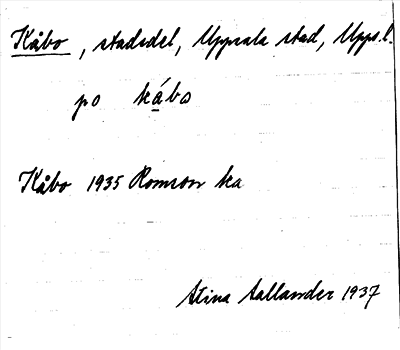 Kåbo, stadsdel, Uppsala stad, Upps.l.
po kåbo
Kåbo 1935 Romson ka
Stina Aallander 1937